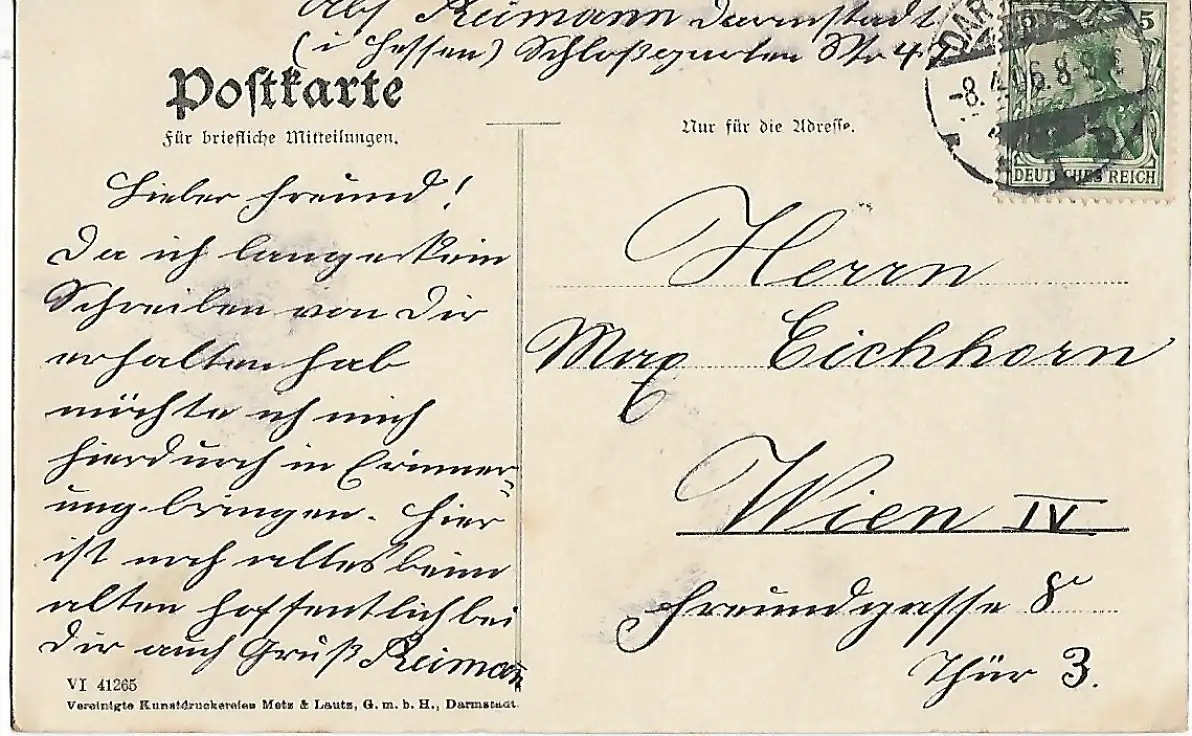 Abs Reimann Darmstadt
(i Hessen) Schloßgarten Str 47
Postkarte
Für briefliche Mitteilungen.
Nur für die Adresse.
DARMSTADT
-8.4.06.8-9
5
DEUTSCHES REICH
Lieber Freund!
Da ich lange kein
Schreiben von Dir
erhalten hab
möchte ich mich
hierdurch in Erinner-
ung bringen. Hier
ist noch alles beim
alten hoffentlich bei
Dir auch Gruß Reimann
Herrn
Max Eichhorn
Wien IV
Freundgasse 8
Thür 3.
VI 41265
Vereinigte Kunstdruckereien Metz & Lautz, G. m. b. H., Darmstadt.